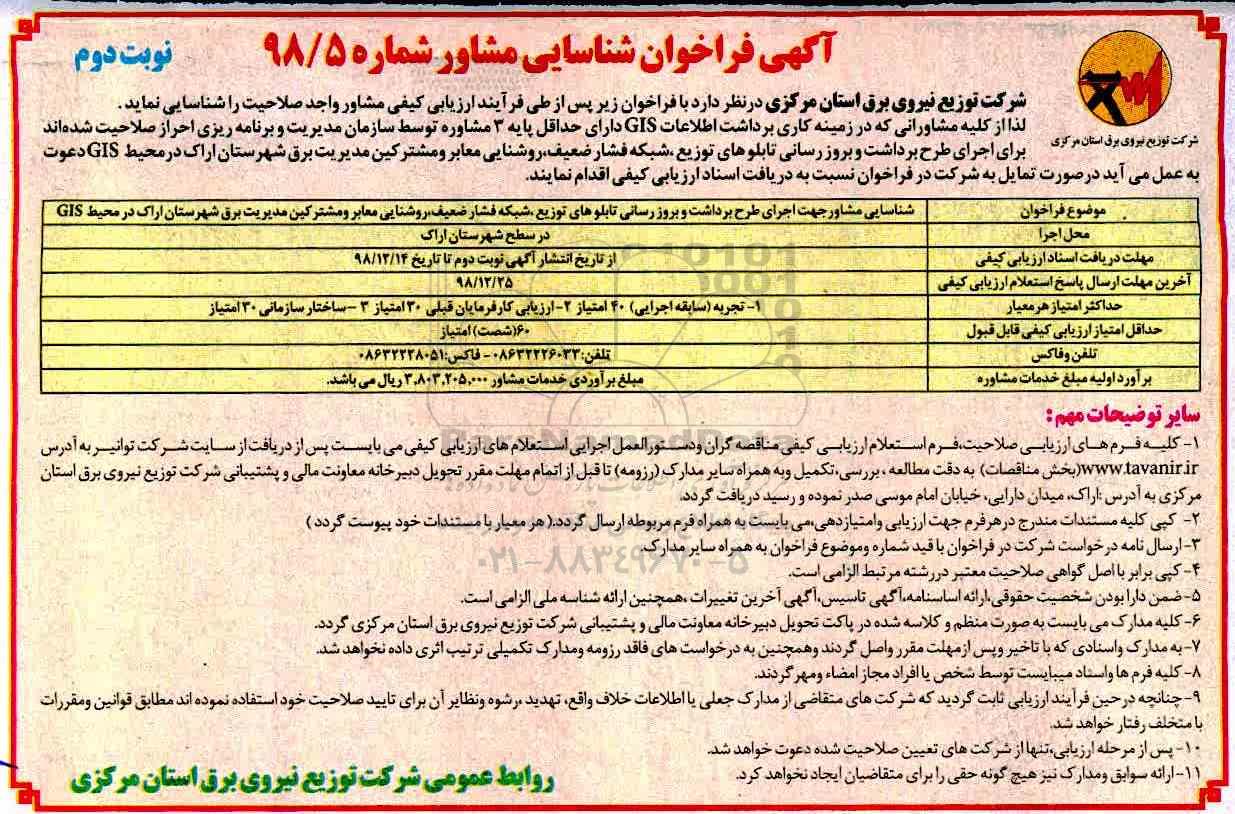 آگهی فراخوان شناسایی مشاور شماره ۹۸/۵
نوبت دوم
شرکت توزیع نیروی برق استان مرکزی
شرکت توزیع نیروی برق استان مرکزی درنظر دارد با فراخوان زیر پس از طی فرآیند ارزیابی کیفی مشاور واجد صلاحیت را شناسایی نماید .
لذا از کلیه مشاورانی که در زمینه کاری برداشت اطلاعات GIS دارای حداقل پایه ۳ مشاوره توسط سازمان مدیریت و برنامه ریزی احراز صلاحیت شده‌اند
برای اجرای طرح برداشت و بروز رسانی تابلو های توزیع ،شبکه فشار ضعیف،روشنایی معابر ومشترکین مدیریت برق شهرستان اراک درمحیط GIS دعوت
به عمل می آید درصورت تمایل به شرکت در فراخوان نسبت به دریافت اسناد ارزیابی کیفی اقدام نمایند.
موضوع فراخوان شناسایی مشاور جهت اجرای طرح برداشت و بروز رسانی تابلو های توزیع ،شبکه فشار ضعیف،روشنایی معابر ومشترکین مدیریت برق شهرستان اراک در محیط GIS
محل اجرا در سطح شهرستان اراک
مهلت دریافت اسناد ارزیابی کیفی از تاریخ انتشار آگهی نوبت دوم تا تاریخ ۹۸/۱۲/۱۴
آخرین مهلت ارسال پاسخ استعلام ارزیابی کیفی ۹۸/۱۲/۲۵
حداکثر امتیاز هر معیار ۱- تجربه (سابقه اجرایی) ۴۰ امتیاز ۲- ارزیابی کارفرمایان قبلی ۳۰ امتیاز ۳ -ساختار سازمانی ۳۰ امتیاز
حداقل امتیاز ارزیابی کیفی قابل قبول ۶۰(شصت) امتیاز
تلفن وفاکس تلفن:۰۸۶۳۲۲۲۶۰۳۳- فاکس:۰۸۶۳۲۲۲۸۰۵۱
برآورد اولیه مبلغ خدمات مشاوره مبلغ برآوردی خدمات مشاور ۳,۸۰۳,۲۰۵,۰۰۰ ریال می باشد.
سایر توضیحات مهم:
۱- کلیه فرم های ارزیابی صلاحیت،فرم استعلام ارزیابی کیفی مناقصه گران ودستورالعمل اجرایی استعلام های ارزیابی کیفی می بایست پس از دریافت از سایت شرکت توانیر به آدرس
www.tavanir.ir(بخش مناقصات) به دقت مطالعه ،بررسی،تکمیل وبه همراه سایر مدارک (رزومه) تا قبل از اتمام مهلت مقرر تحویل دبیرخانه معاونت مالی و پشتیبانی شرکت توزیع نیروی برق استان
مرکزی به آدرس :اراک، میدان دارایی، خیابان امام موسی صدر نموده و رسید دریافت گردد.
۲- کپی کلیه مستندات مندرج درهرفرم جهت ارزیابی وامتیازدهی،می بایست به همراه فرم مربوطه ارسال گردد.( هر معیار با مستندات خود پیوست گردد )
۳- ارسال نامه درخواست شرکت در فراخوان با قید شماره وموضوع فراخوان به همراه سایر مدارک.
۴- کپی برابر با اصل گواهی صلاحیت معتبر دررشته مرتبط الزامی است.
۵- ضمن دارا بودن شخصیت حقوقی،ارائه اساسنامه،آگهی تاسیس،آگهی آخرین تغییرات ،همچنین ارائه شناسه ملی الزامی است.
۶- کلیه مدارک می بایست به صورت منظم و کلاسه شده در پاکت تحویل دبیرخانه معاونت مالی و پشتیبانی شرکت توزیع نیروی برق استان مرکزی گردد.
۷- به مدارک واسنادی که با تاخیر وپس ازمهلت مقرر واصل گردند وهمچنین به درخواست های فاقد رزومه ومدارک تکمیلی ترتیب اثری داده نخواهد شد.
۸- کلیه فرم ها واسناد میبایست توسط شخص یا افراد مجاز امضاء ومهر گردند.
۹- چنانچه درحین فرآیند ارزیابی ثابت گردید که شرکت های متقاضی از مدارک جعلی یا اطلاعات خلاف واقع، تهدید ،رشوه ونظایر آن برای تایید صلاحیت خود استفاده نموده اند مطابق قوانین ومقررات
با متخلف رفتار خواهد شد.
۱۰- پس از مرحله ارزیابی،تنها از شرکت های تعیین صلاحیت شده دعوت خواهد شد.
۱۱- ارائه سوابق ومدارک نیز هیچ گونه حقی را برای متقاضیان ایجاد نخواهد کرد.
روابط عمومی شرکت توزیع نیروی برق استان مرکزی
۰۲۱-۸۸۳۴۹۶۷۰-۵